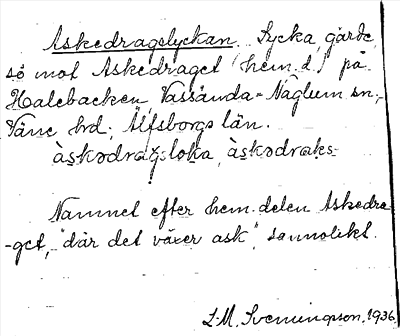 Askedragslyckan. Lycka, gärde,
sö mot Askedraget (hem.d.) på
Halebacken, Vassända-Naglum sn.,
Väne hrd, Älfsborgs län.
àskədragsloka, àskədraks-
Namnet efter hem.delen Askedra-
-get, "där det växer ask", sannolikt.
L.M. Svenungsson. 1936.